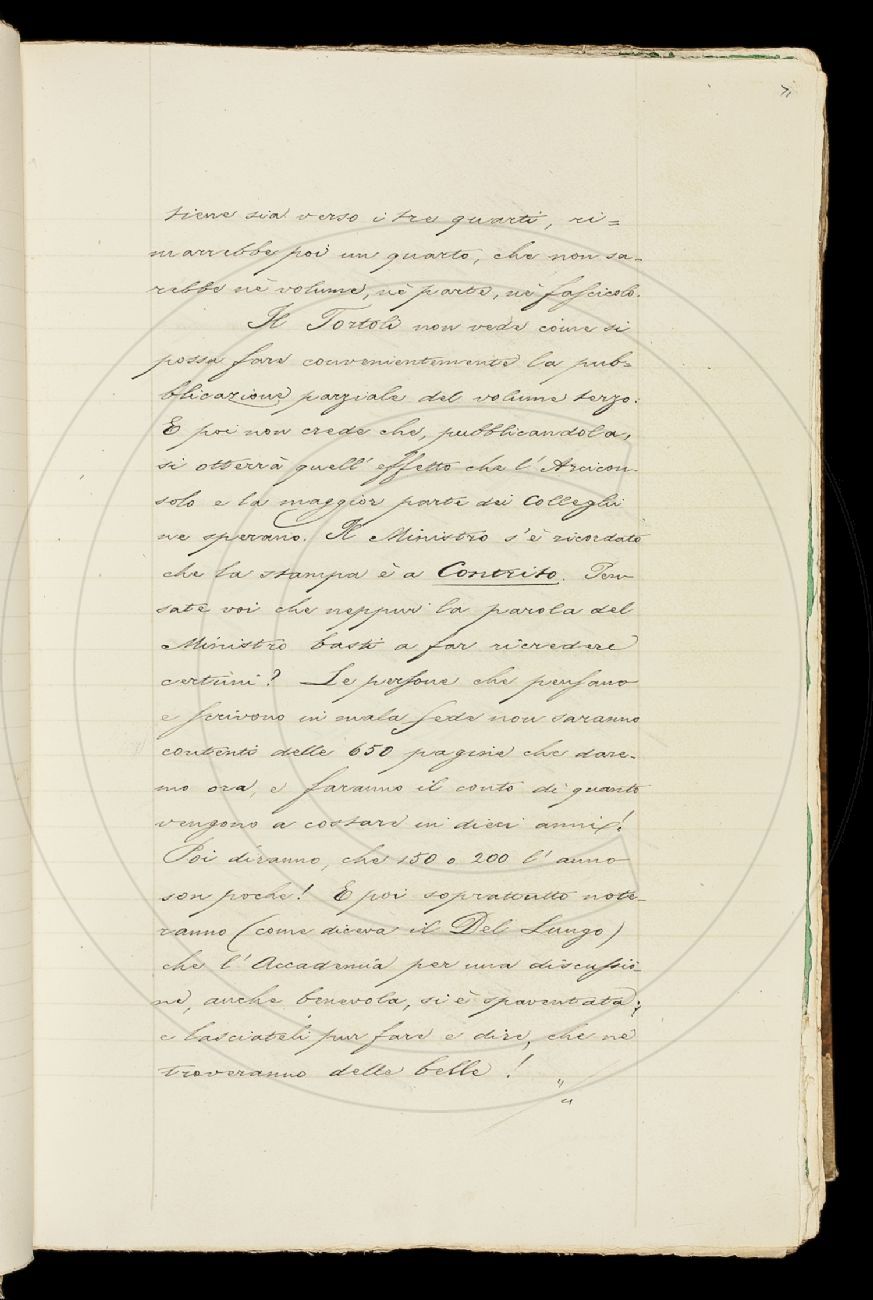 71
tiene sia verso i tre quarti, ri=
marrebbe poi un quarto, che non sa-
rebbe nè volume, nè parte, nè fascicolo.
Il Tortoli non vede come si
possa fare convenientemente la pub-
blicazione parziale del volume terzo.
E poi non crede che, pubblicandola,
si otterrà quell' effetto che l' Arcicon-
solo e la maggior parte dei Colleghi
ne sperano. Il Ministro s'è ricordato
che la stampa è a Contrito. Pen-
sate voi che neppur la parola del
Ministro basti a far ricredere
certuni? Le persone che pensano
e scrivono in mala fede non saranno
contenti delle 650 pagine che dare-
mo ora, e faranno il conto di quanto
vengono a costare in dieci anni!
Poi diranno, che 150 o 200 l' anno
son poche! E poi soprattutto note-
ranno (come diceva il Del Lungo)
che l' Accademia per una discussio-
ne, anche benevola, si è spaventata;
e lasciateli pur fare e dire, che ne
troveranno delle belle! "